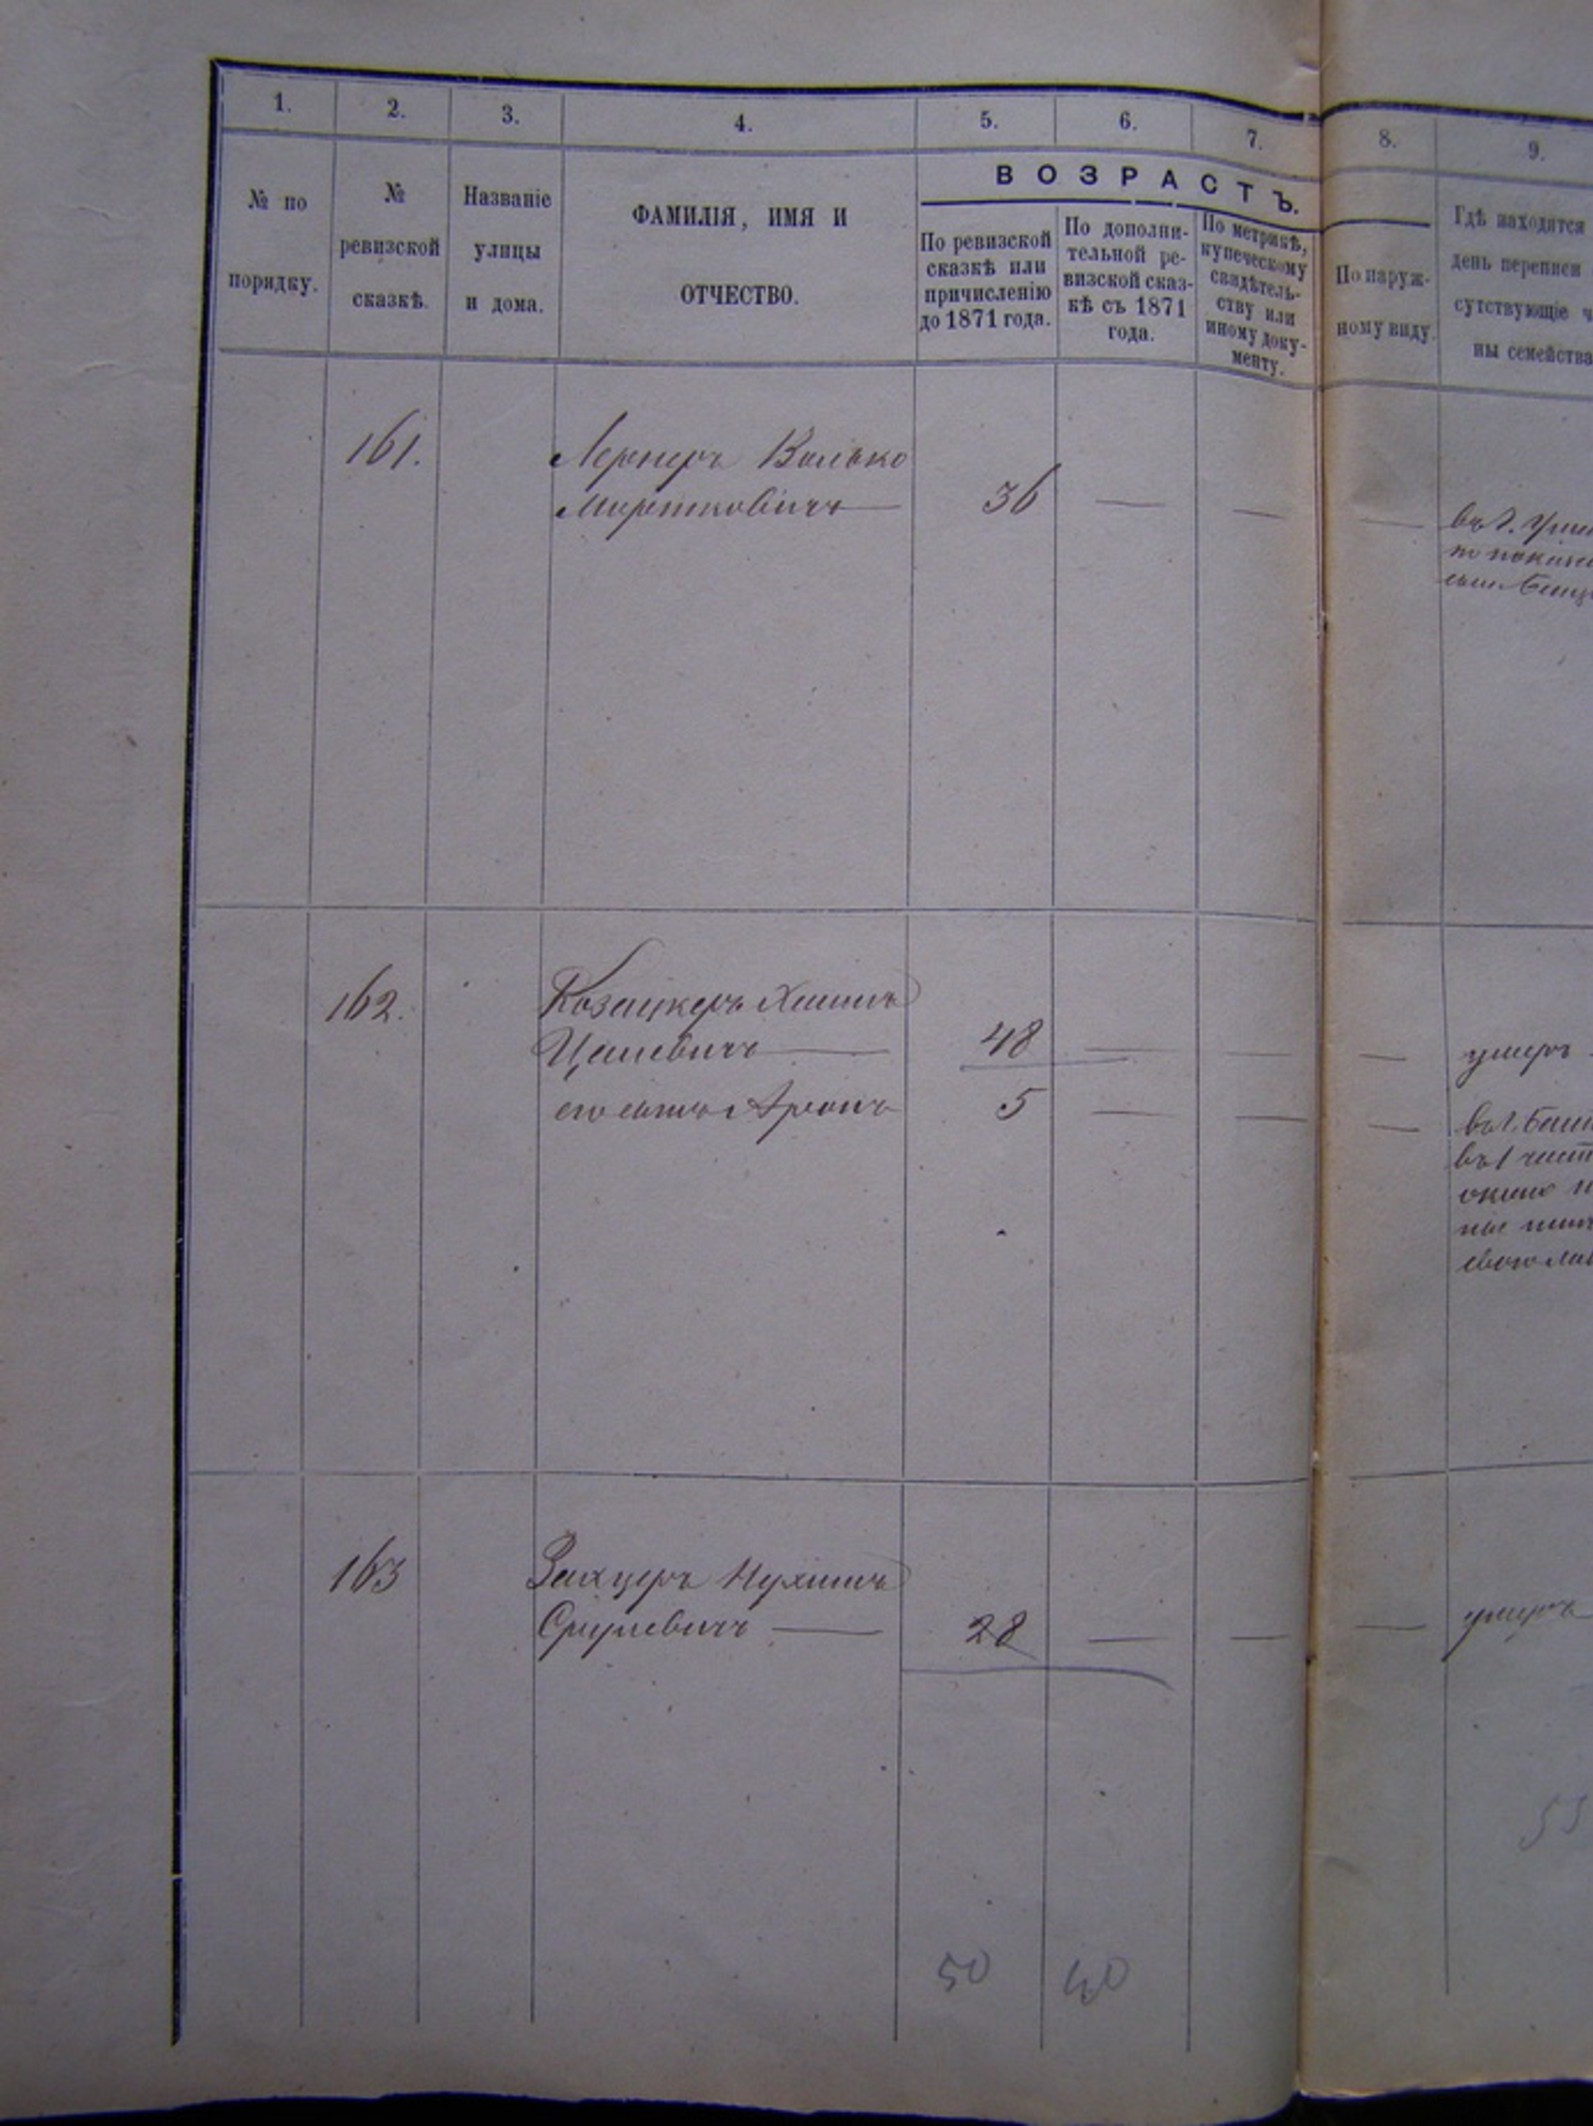 1.
2.
3.
4.
5.
6.
7.
8.
9.
№ по
порядку.
№
ревизской
сказкѣ.
Названіе
улицы
и дома.
ФАМИЛІЯ, ИМЯ И
ОТЧЕСТВО.
ВОЗРАСТЪ.
По ревизской
сказкѣ или
причисленію
до 1871 года.
По дополни-
тельной ре-
визской сказ-
кѣ съ 1871
года.
По метрикѣ,
купеческому
свидѣтель-
ству или
иному доку-
менту.
По наруж-
ному виду.
Гдѣ находятся
день переписи
сутствующіе ч
ны семейства
161.
Лернеръ Волько
Мортковичъ —
36 — — —
въ г.
по показа
162.
Козацкеръ Хаимъ
Цалевичъ —
48 — — —
умеръ
его сынъ Аронъ
5 — — —
въ г.
въ 1 част
около
163
Закцеръ Нухимъ
Сруллевичъ —
28 — — —
умеръ
50
40